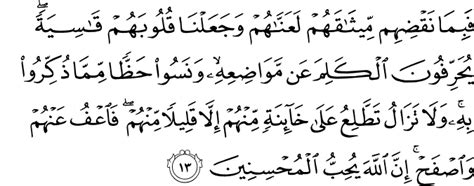 فَبِمَا نَقْضِهِم مِّيثَٰقَهُمْ لَعَنَّٰهُمْ وَجَعَلْنَا قُلُوبَهُمْ قَٰسِيَةًۖ
يُحَرِّفُونَ ٱلْكَلِمَ عَن مَّوَاضِعِهِۦ وَنَسُوا۟ حَظًّا مِّمَّا ذُكِّرُوا۟
بِهِۦۚ وَلَا تَزَالُ تَطَّلِعُ عَلَىٰ خَآئِنَةٍ مِّنْهُمْ إِلَّا قَلِيلًا مِّنْهُمْۖ فَٱعْفُ عَنْهُمْ
وَٱصْفَحْۚ إِنَّ ٱللَّهَ يُحِبُّ ٱلْمُحْسِنِينَ ١٣